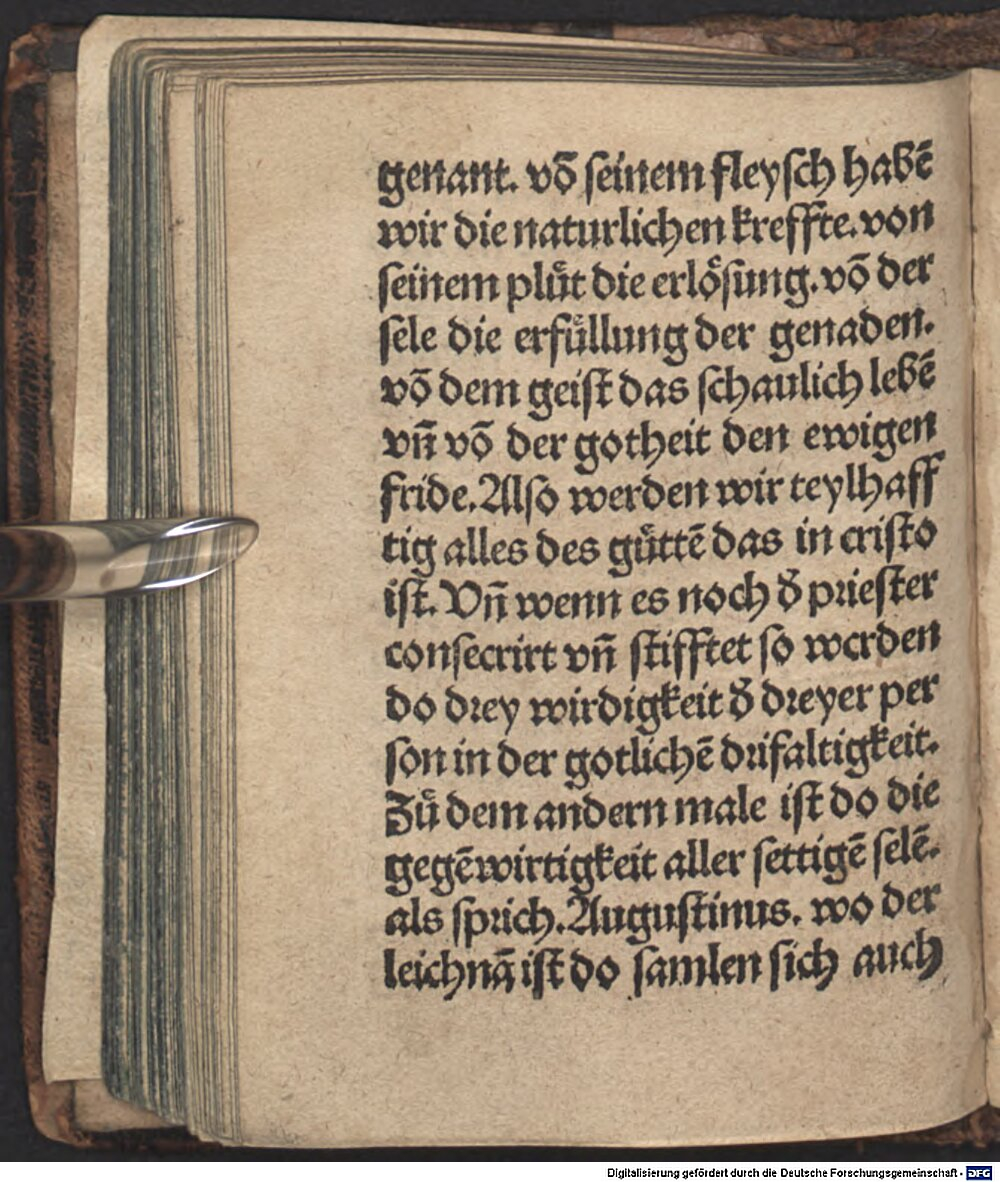 genant. vō ſeinem fleyſch habē
wir die naturlichen kreffte. von
ſeinem plůt die erlöſung. vō der
ſele die erfüllung der genaden.
vō dem geiſt das ſchaulich lebē
vn̄ vō der gotheit den ewigen
fride. Alſo werden wir teylhaff
tig alles des gůttē das in criſto
iſt. Vn̄ wenn es noch d̕ prieſter
conſecrirt vn̄ ſtifftet ſo werden
do drey wirdigkeit d̕ dreyer per
ſon in der gotlichē drifaltigkeit.
Zů dem andern male iſt do die
gegēwirtigkeit aller ſettigē ſelē.
als ſprich. Auguſtinus. wo der
leichnā iſt do ſamlen ſich auch
Digitalisierung gefördert durch die Deutsche Forschungsgemeinschaft - DFG